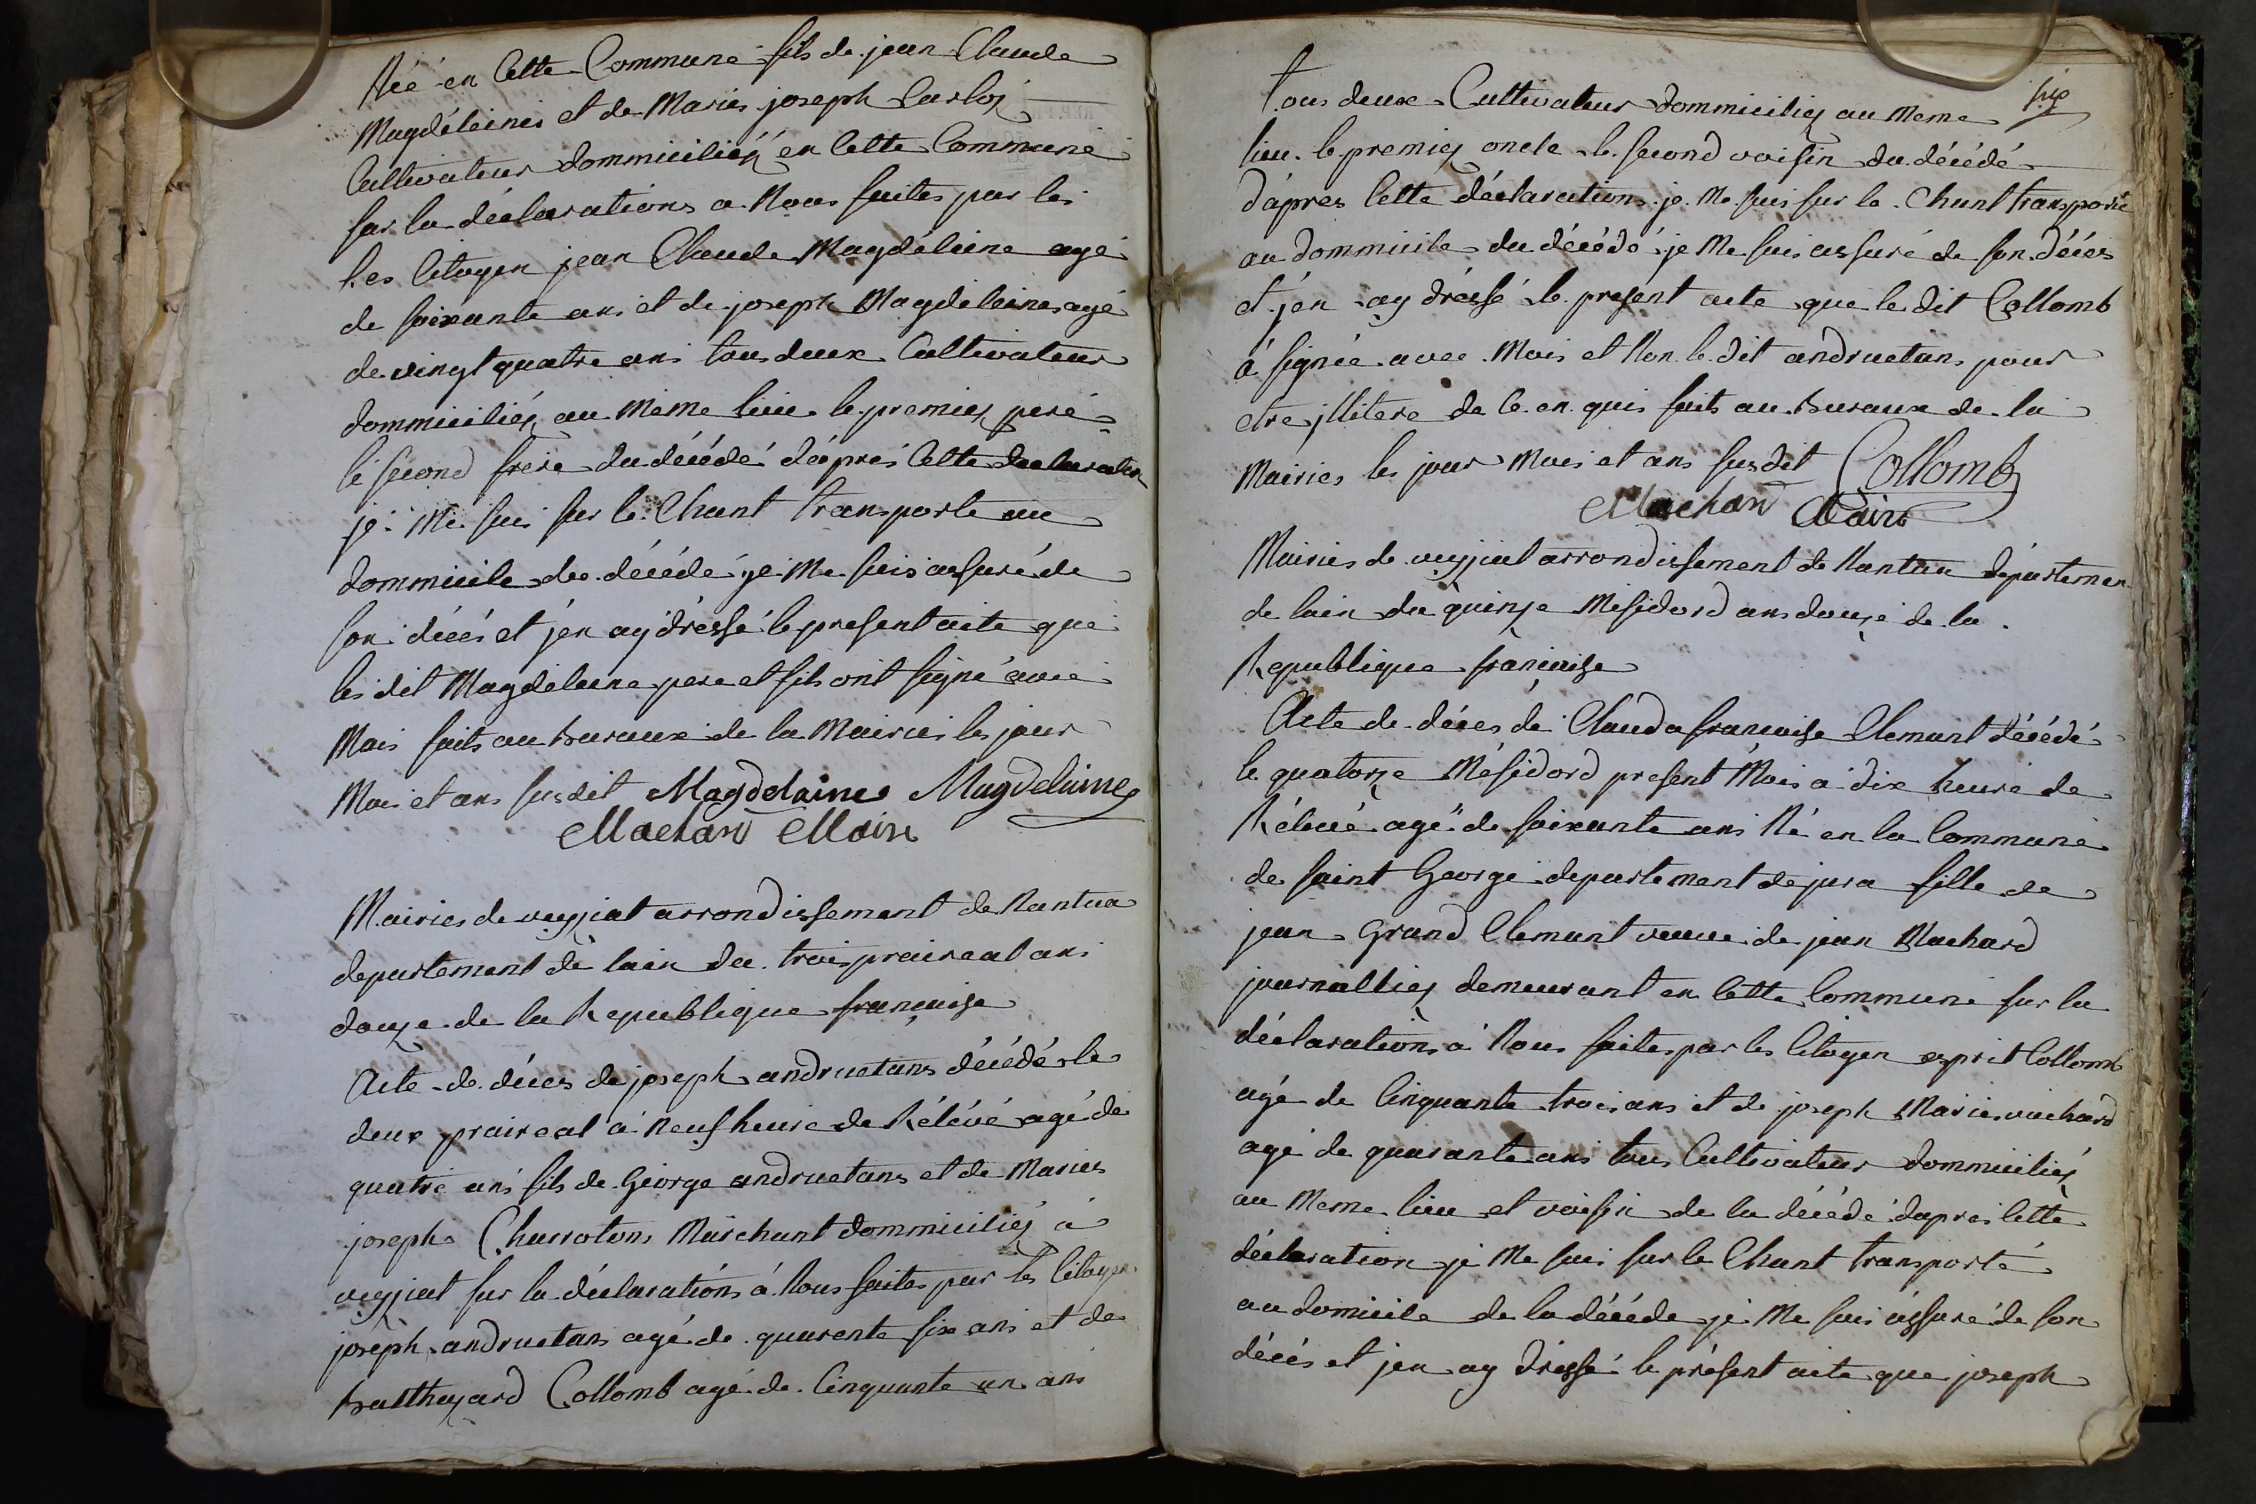 Né en Cette Commune fils de jean Claude
Magdéleines et de Maries joseph Carloz
Cultivateur dommiciliéz en Cette Commune
sur la déclarations a Nous faites par les
les Citoyen jean Claude Magdéleine agé
de soixante ans et de joseph Magdéleines agé
de vingt quatre ans tous deux Cultivateur
dommiciliéz au Même lieu le premiez peré
le second frere du décédé d'áprés Cette declaration
je Me suis sur le Chant transporte au
dommicile du décédé je Me suis assuré de
son décés et j'en ay dréssé le present acte que
les dit Magdeleine pere et fils ont signé avec
Mois faits au buraux de la Mairies les jour
Mois et ans susdit Magdelaine Magdelaine
Machard Maire
Mairies de veyziat arrondissement de Nantua
departement de lain du trois praireal ans
douze de la Republique française
Acte de décès de joseph andruetans décédé le
deux praireal á Neuf heure de Rélévé agé de
quatre ans fils de George andruetans et de Maries
joseph Charrotons Marchant dommiciliéz á
veyziat sur la déclarations á Nous faites par les Citoyen
joseph andruetans agé de quarente six ans et de
batthezard Collomb agé de Cinquante un ans
six
tous deux Cultivateur dommiciliez au Meme
lieu le premiez oncle le second voisin du décédé
d'ápres Cette déclarations je Me suis sur le Chant transporté
au dommicile du décédé je Me suis assuré de son décés
et j'en ay dréssé le present acte que le dit Collomb
á signée avec Mois et Non le dit andruetans pour
etre jllitere de Ce en quis faits au buraux de la
Mairies les jour Mois et ans susdit Collomb
Machard Maire
Mairies de veyziat arrondissement de Nantua départemen
de lain du quinze Mesidord ans douze de la
Republique française
Acte de déces de Clauda françoise Clemant décédé
le quatorze Mésidord present Mois a dix heure de
Rélevé agé de soixante ans Né en la Commune
de saint George departement de jura fille de
jean Grand Clemant veuve de jean Machard
journalliez demeurant en Cette Commune sur la
déclarations á Nous faites par les Citoyen esprit Collomb
agé de Cinquante trois ans et de joseph Maries vuchard
agé de quarante ans tous Cultivateur dommiciliéz
au Meme lieu et voisin de la décédé dapres Cette
déclaration je Me suis sur le Chant transporté
au domicile de la décéde je Me suis assuré de son
décés et jen ay dressé le présent acte que joseph